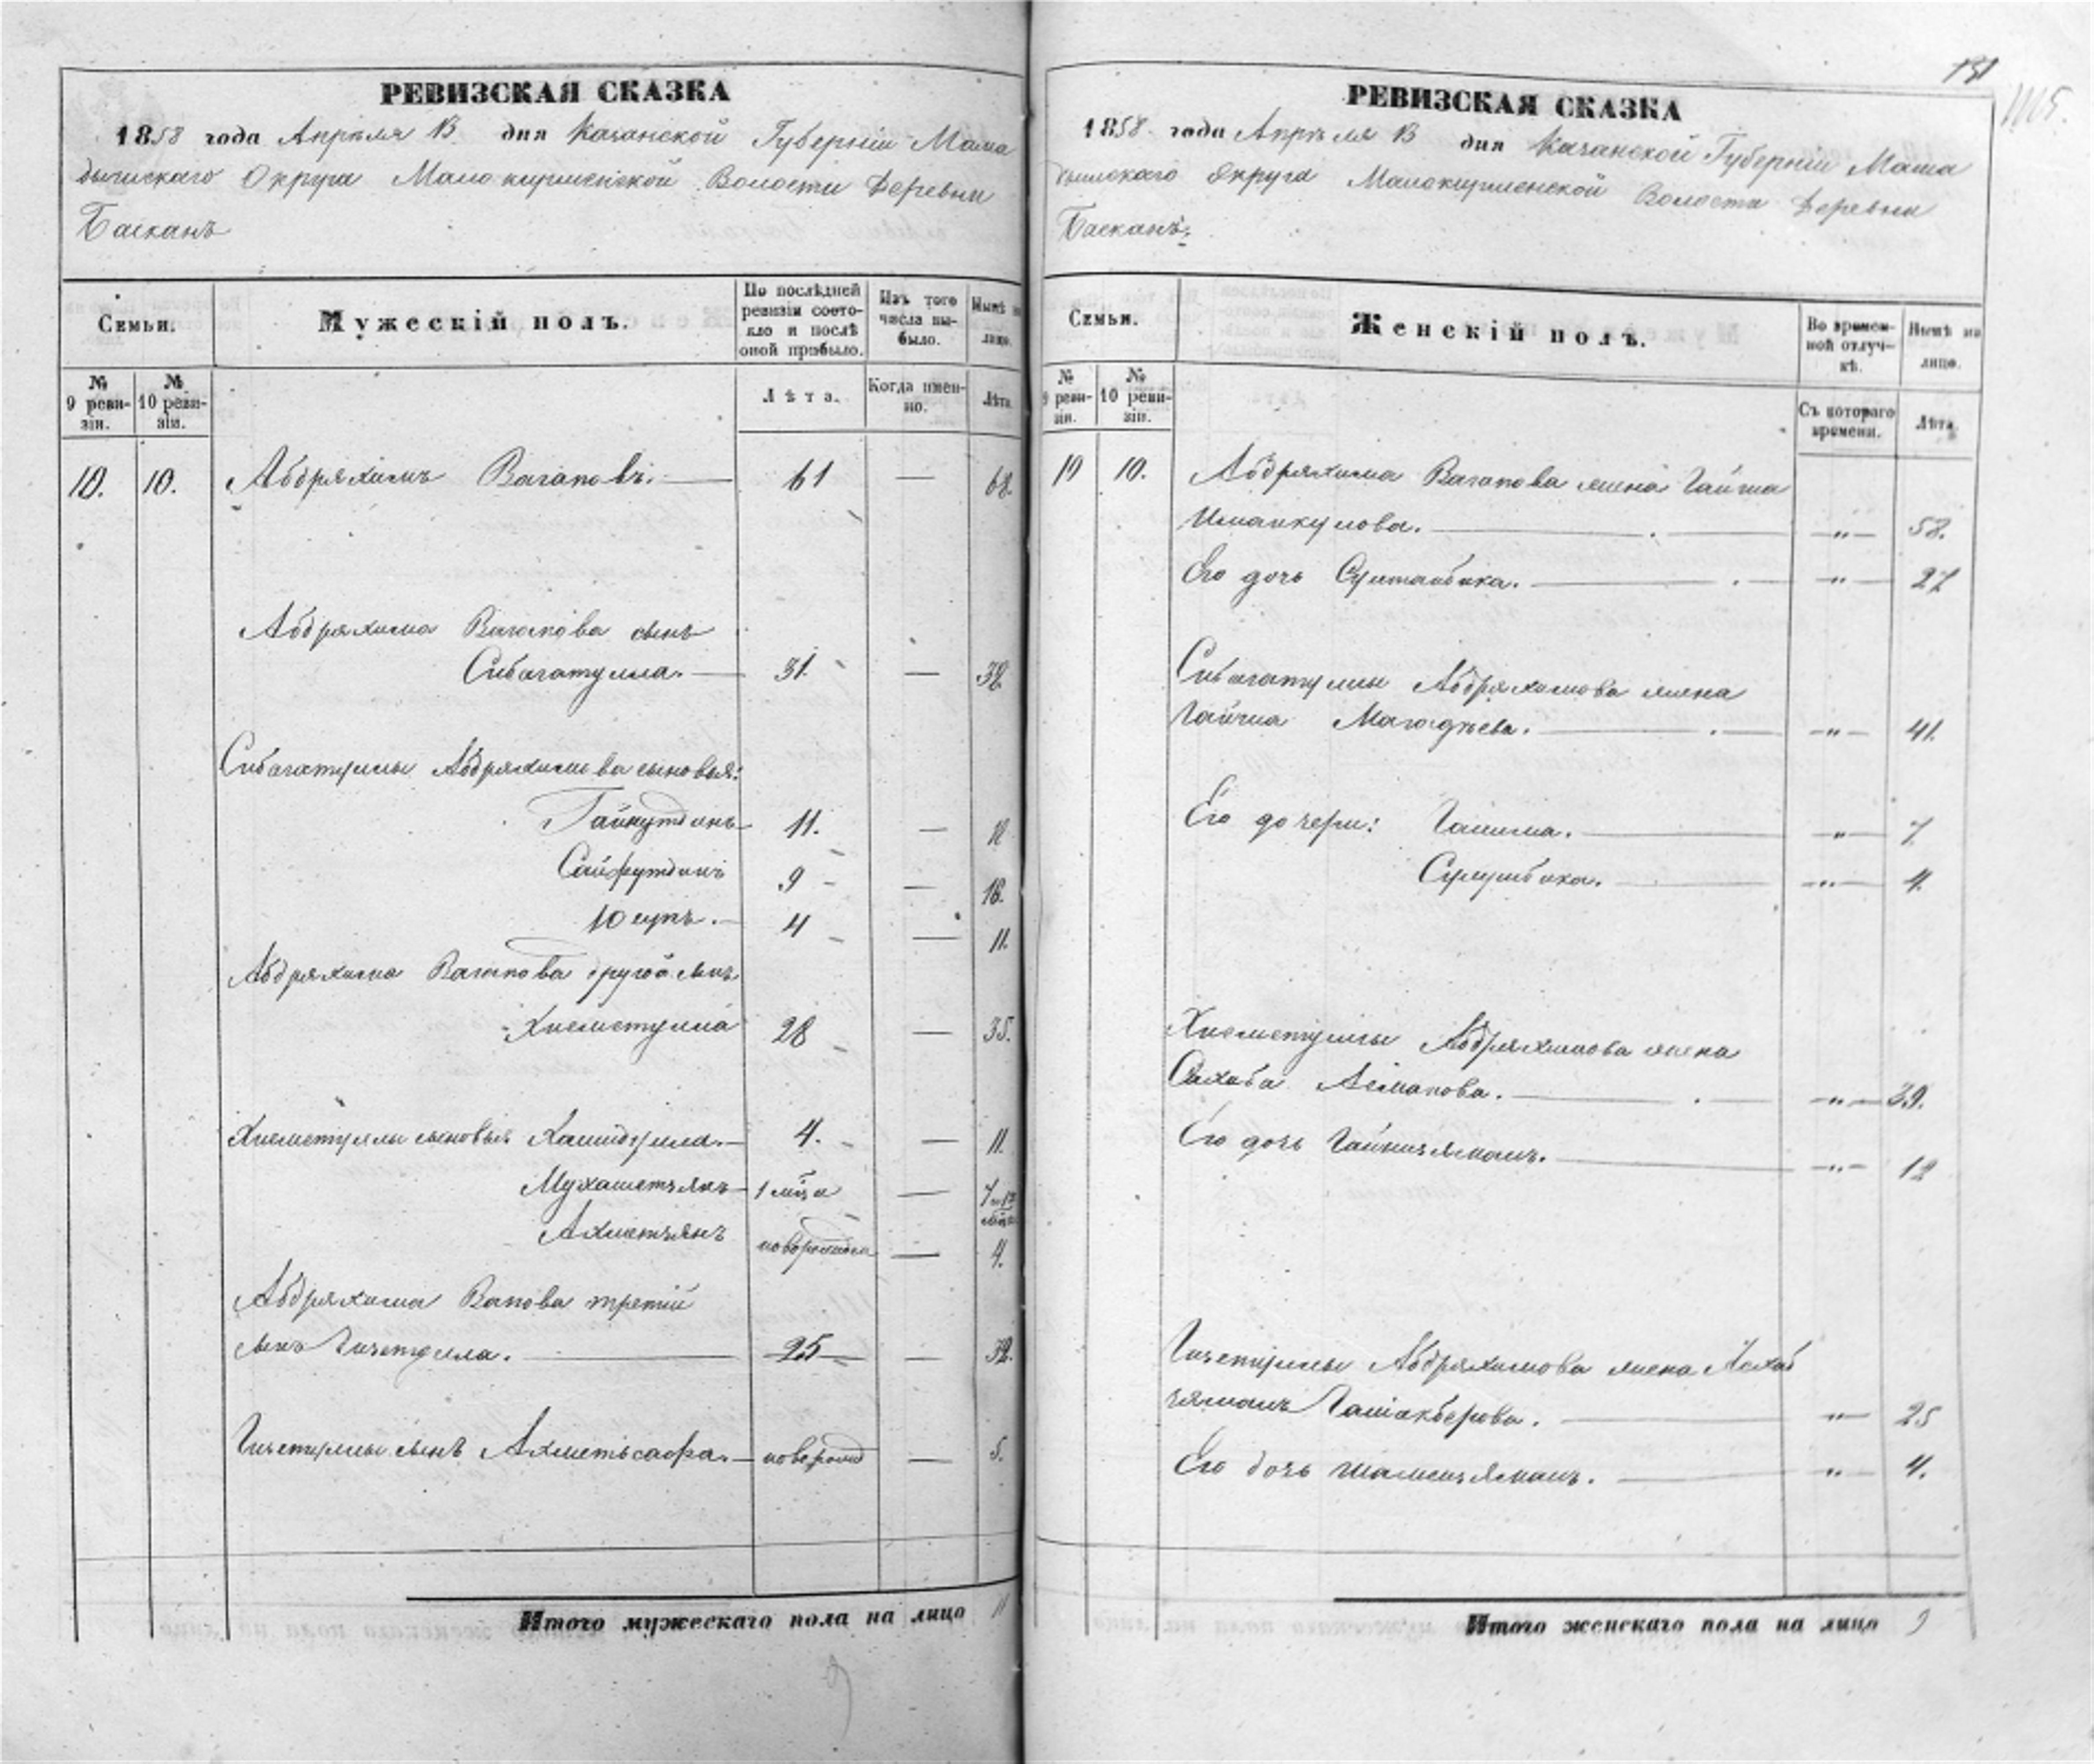 РЕВИЗСКАЯ СКАЗКА
1858 года Апреля 13 дня Казанской Губерніи Мама
дышскаго Округа Малокирменской Волости Деревни
Басканъ
Семьи.
Мужескій полъ.
По послѣдней ревизіи состояло и послѣ оной прибыло.
Изъ того числа выбыло.
Нынѣ на лицо.
№ 9 ревизіи.
№ 10 ревизіи.
Лѣта.
Когда именно.
Лѣта.
10. 10. Абдряхимъ Вагаповъ. 61 — 68.
Абдряхима Вагапова сынъ
Сибагатулла. 31. — 38.
Сибагатуллы Абдряхимова сыновья:
Гайнутдинъ 11. — 18
Сайфутдинъ 9 — 16.
Юсупъ. 4 — 11.
Абдряхима Вагапова другой сынъ
Хисметулла 28 — 35.
Хисметуллы сыновья 4. — 11.
Мухаметзянъ 1 мѣся — 7
Ахметзянъ новорожден — 4.
Абдряхима Вапова третій
сынъ Гизетулла. 25 — 32.
Гизетуллы сынъ Ахметьсафа. новорожд — 5.
Итого мужескаго пола на лицо 11
9
131
РЕВИЗСКАЯ СКАЗКА
1858 года Апрѣля 13 дня Казанской Губерніи Мама
дышскаго Округа Малокирменской Волости Деревни
Басканъ:
Семьи.
Женскій полъ.
Во временной отлучкѣ.
Нынѣ на лицо.
№ 9 ревизіи.
№ 10 ревизіи.
Съ котораго времени.
Лѣта
10 10. Абдряхима Вагапова жена Гайша
Иманкулова. — „ — 58.
Его дочь Султанбика. — „ — 27
Сибагатуллы Абдряхимова жена
Гайша — „ — 41.
Его дочери: Галима. — „ — 7
— „ — 4.
Хисметуллы Абдряхимова жена
Сахаба Асманова. — „ — 39.
Его дочь Гайнизямалъ. — „ — 12
Гизетуллы Абдряхимова жена Асхаб
зямалъ Галіакберова. — „ — 25
Его дочь Шамсизямалъ. — „ — 4.
Итого женскаго пола на лицо 9